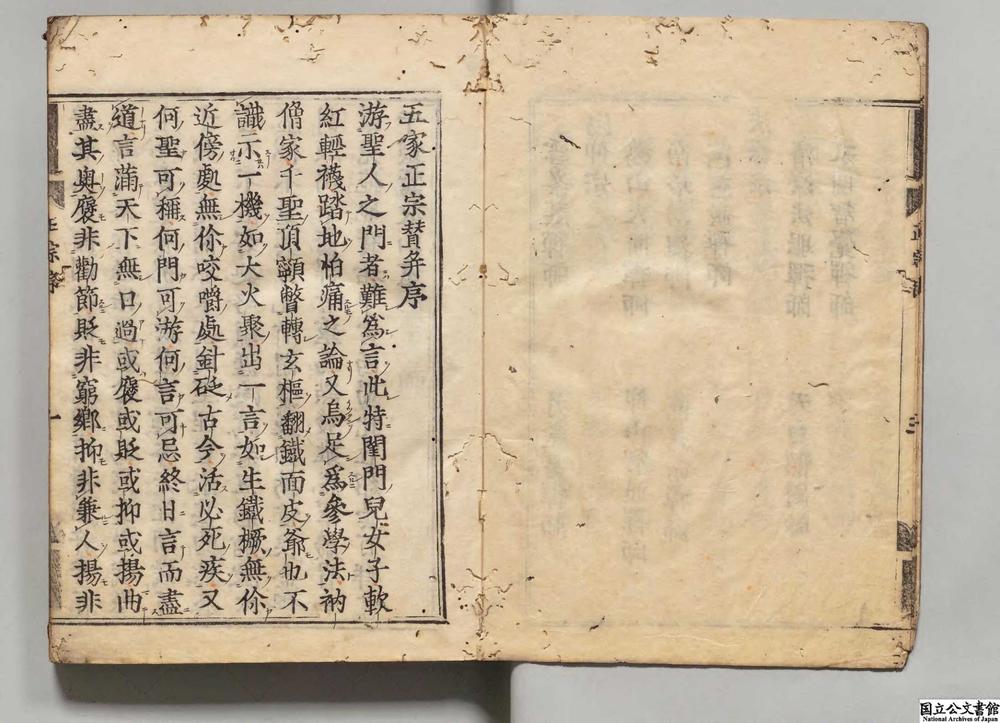 五家正宗賛并序
游聖人之門者難爲言此特閨門兒女子軟
紅輕襪踏地怕痛之論又烏足爲參學法衲
僧家千聖頂𩕳瞥轉玄樞翻鐵面皮爺也不
識示一機如大火聚出一言如生鐵橛無你
近傍處無你咬嚼處針砭古今活必死疾又
何聖可稱何門可游何言可忌終日言而盡
道言滿天下無口過或襃或貶或抑或揚曲
盡其奧襃非勸節貶非窮鄉抑非兼人揚非
一
国立公文書館
National Archives of Japan